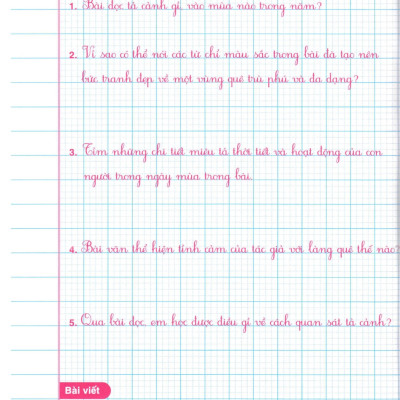 1. Bài đọc tả cảnh gì, vào mùa nào trong năm?
2. Vì sao có thể nói các từ chỉ màu sắc trong bài đã tạo nên
bức tranh đẹp về một vùng quê trù phú và đa dạng?
3. Tìm những chi tiết miêu tả thời tiết và hoạt động của con
người trong ngày mùa trong bài.
4. Bài văn thể hiện tình cảm của tác giả với làng quê thế nào?
5. Qua bài đọc, em học được điều gì về cách quan sát tả cảnh?
Bài viết